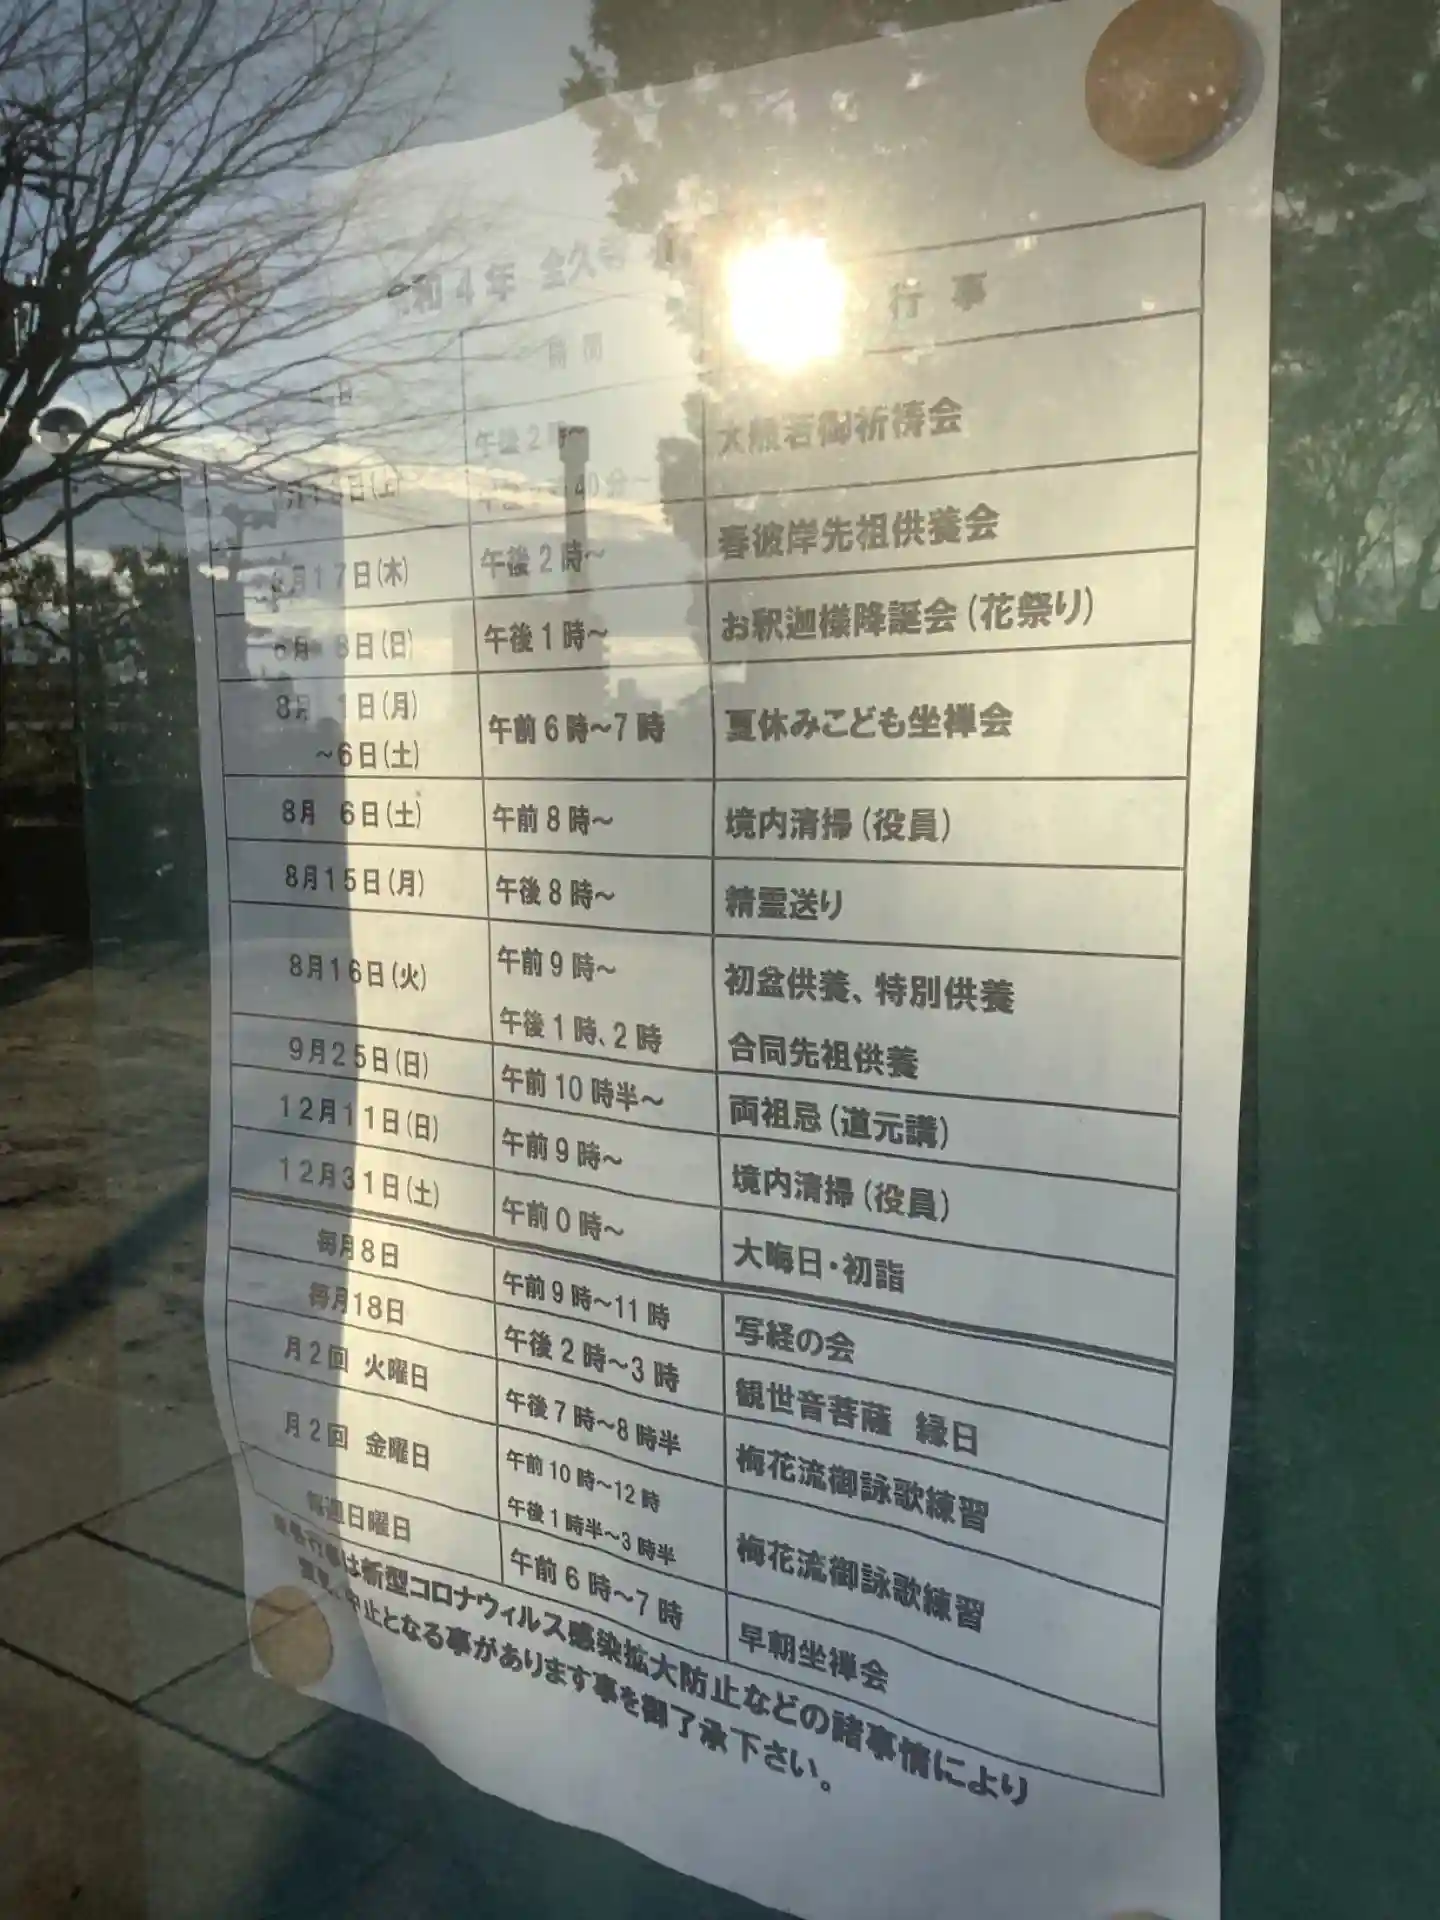 和4年 金久寺
日 時間 行事
午後2時～ 大般若御祈祷会
日(土) 40分～
月17日(木) 午後2時～ 春彼岸先祖供養会
8日(日) 午後1時～ お釈迦様降誕会(花祭り)
8月 1日(月)
～6日(土) 午前6時～7時 夏休みこども坐禅会
8月 6日(土) 午前8時～ 境内清掃(役員)
8月15日(月) 午後8時～ 精霊送り
8月16日(火) 午前9時～ 初盆供養、特別供養
午後1時、2時 合同先祖供養
9月25日(日) 午前10時半～ 両祖忌(道元講)
12月11日(日) 午前9時～ 境内清掃(役員)
12月31日(土) 午前0時～ 大晦日・初詣
毎月8日 午前9時～11時 写経の会
毎月18日 午後2時～3時 観世音菩薩 縁日
月2回 火曜日 午後7時～8時半 梅花流御詠歌練習
月2回 金曜日 午前10時～12時 梅花流御詠歌練習
午後1時半～3時半
毎週日曜日 午前6時～7時 早朝坐禅会
行事は新型コロナウィルス感染拡大防止などの諸事情により
中止となる事があります事を御了承下さい。